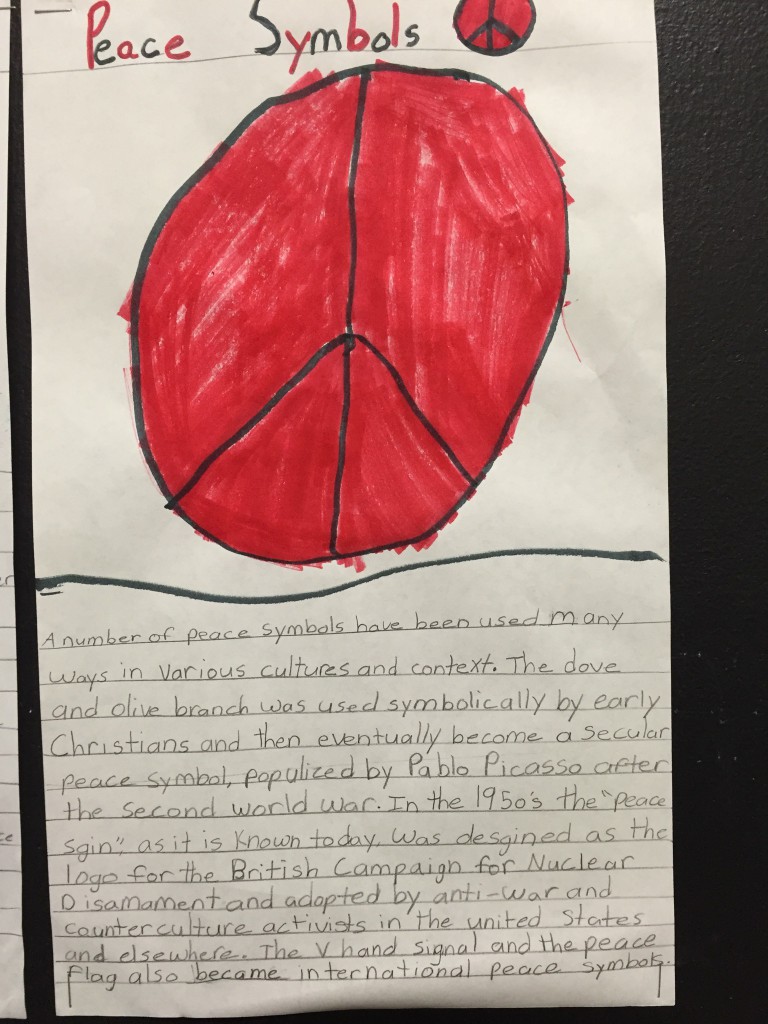 Peace Symbols
A number of peace symbols have been used many
ways in various cultures and context. The dove
and olive branch was used symbolically by early
Christians and then eventually become a secular
peace symbol, populized by Pablo Picasso after
the second world war. In the 1950's the "peace
sgin", as it is known today, was desgined as the
logo for the British Campaign for Nuclear
Disamament and adopted by anti-war and
counterculture activists in the united States
and elsewhere. The V hand signal and the peace
flag also became international peace symbols.